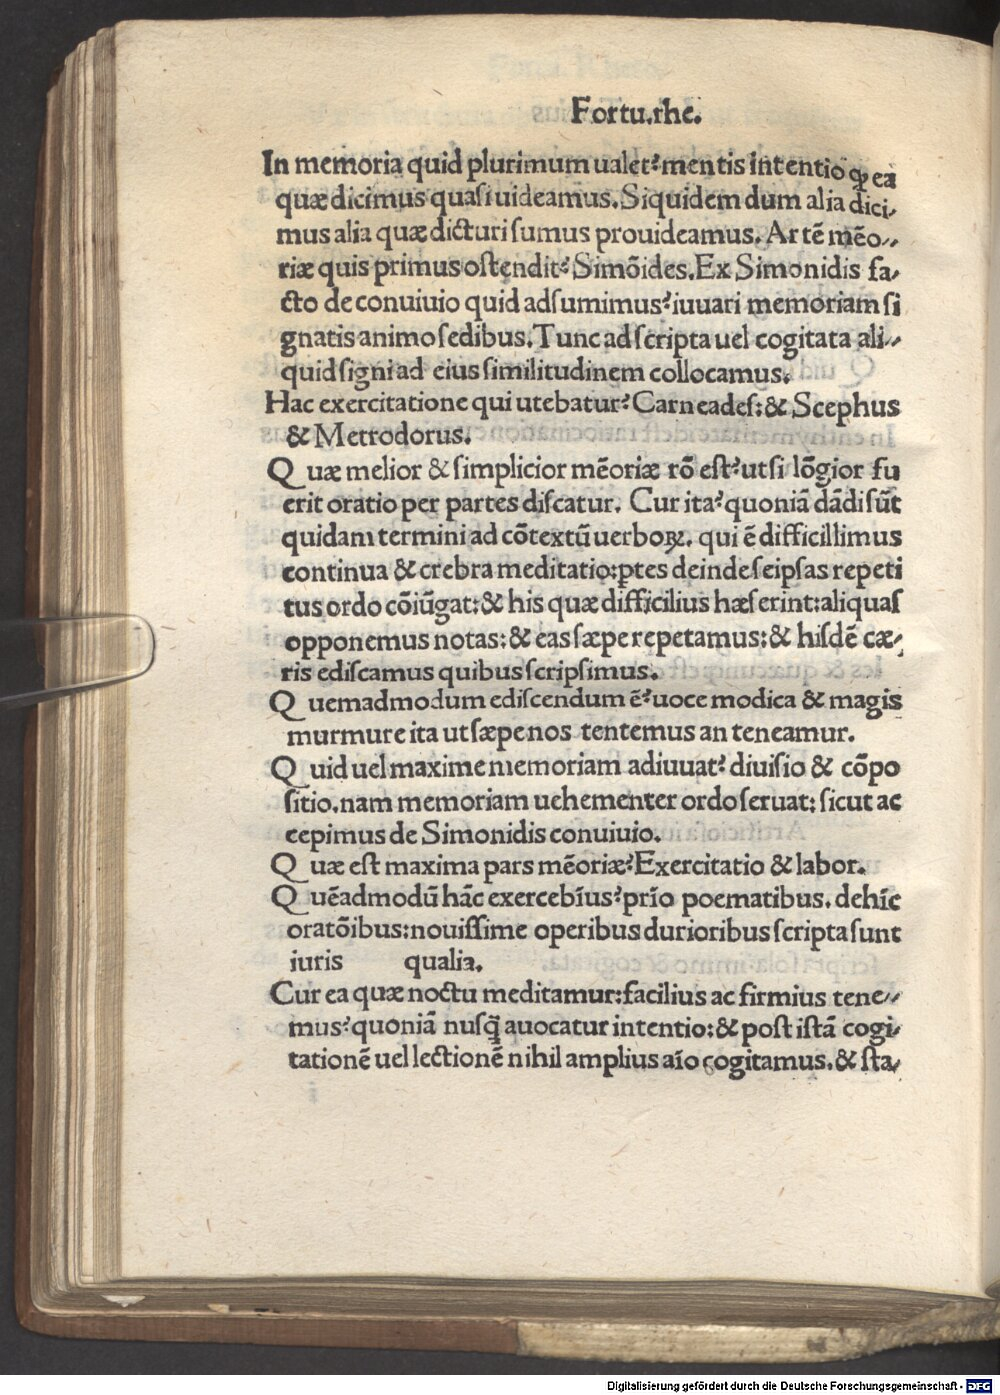 Fortu.rhe.
In memoria quid plurimum ualet? mentis intentio ꝙ ea
quæ dicimus quasi uideamus. Siquidem dum alia dici-
mus alia quæ dicturi sumus prouideamus. Artē mēo-
riæ quis primus ostendit? Simōides. Ex Simonidis fa-
cto de conuiuio quid adsumimus? iuuari memoriam si
gnatis animo sedibus. Tunc ad scripta uel cogitata ali-
quid signi ad eius similitudinem collocamus.
Hac exercitatione qui utebatur? Carneades: & Scephus
& Metrodorus.
Quæ melior & simplicior mēoriæ rō est? ut si lōgior fu
erit oratio per partes discatur. Cur ita? quoniā dādi sūt
quidam termini ad cōtextū uerboꝝ. qui ē difficillimus
continua & crebra meditatio: ꝑtes deinde seipsas repeti
tus ordo cōiūgat: & his quæ difficilius hæserint: aliquas
opponemus notas: & eas sæpe repetamus: & hisdē cæ-
ris ediscamus quibus scripsimus.
Quemadmodum ediscendum ē? uoce modica & magis
murmure ita ut sæpe nos tentemus an teneamur.
Quid uel maxime memoriam adiuuat? diuisio & cōpo
sitio. nam memoriam uehementer ordo seruat: sicut ac
cepimus de Simonidis conuiuio.
Quæ est maxima pars mēoriæ? Exercitatio & labor.
Quēadmodū hāc exercebīus? prīo poematibus. dehīc
oratōibus: nouissime operibus durioribus scripta sunt
iuris qualia.
Cur ea quæ noctu meditamur: facilius ac firmius tene-
mus? quoniā nusꝗ̃ auocatur intentio: & post istā cogi-
tationē uel lectionē nihil amplius aīo cogitamus. & sta-
Digitalisierung gefördert durch die Deutsche Forschungsgemeinschaft - DFG